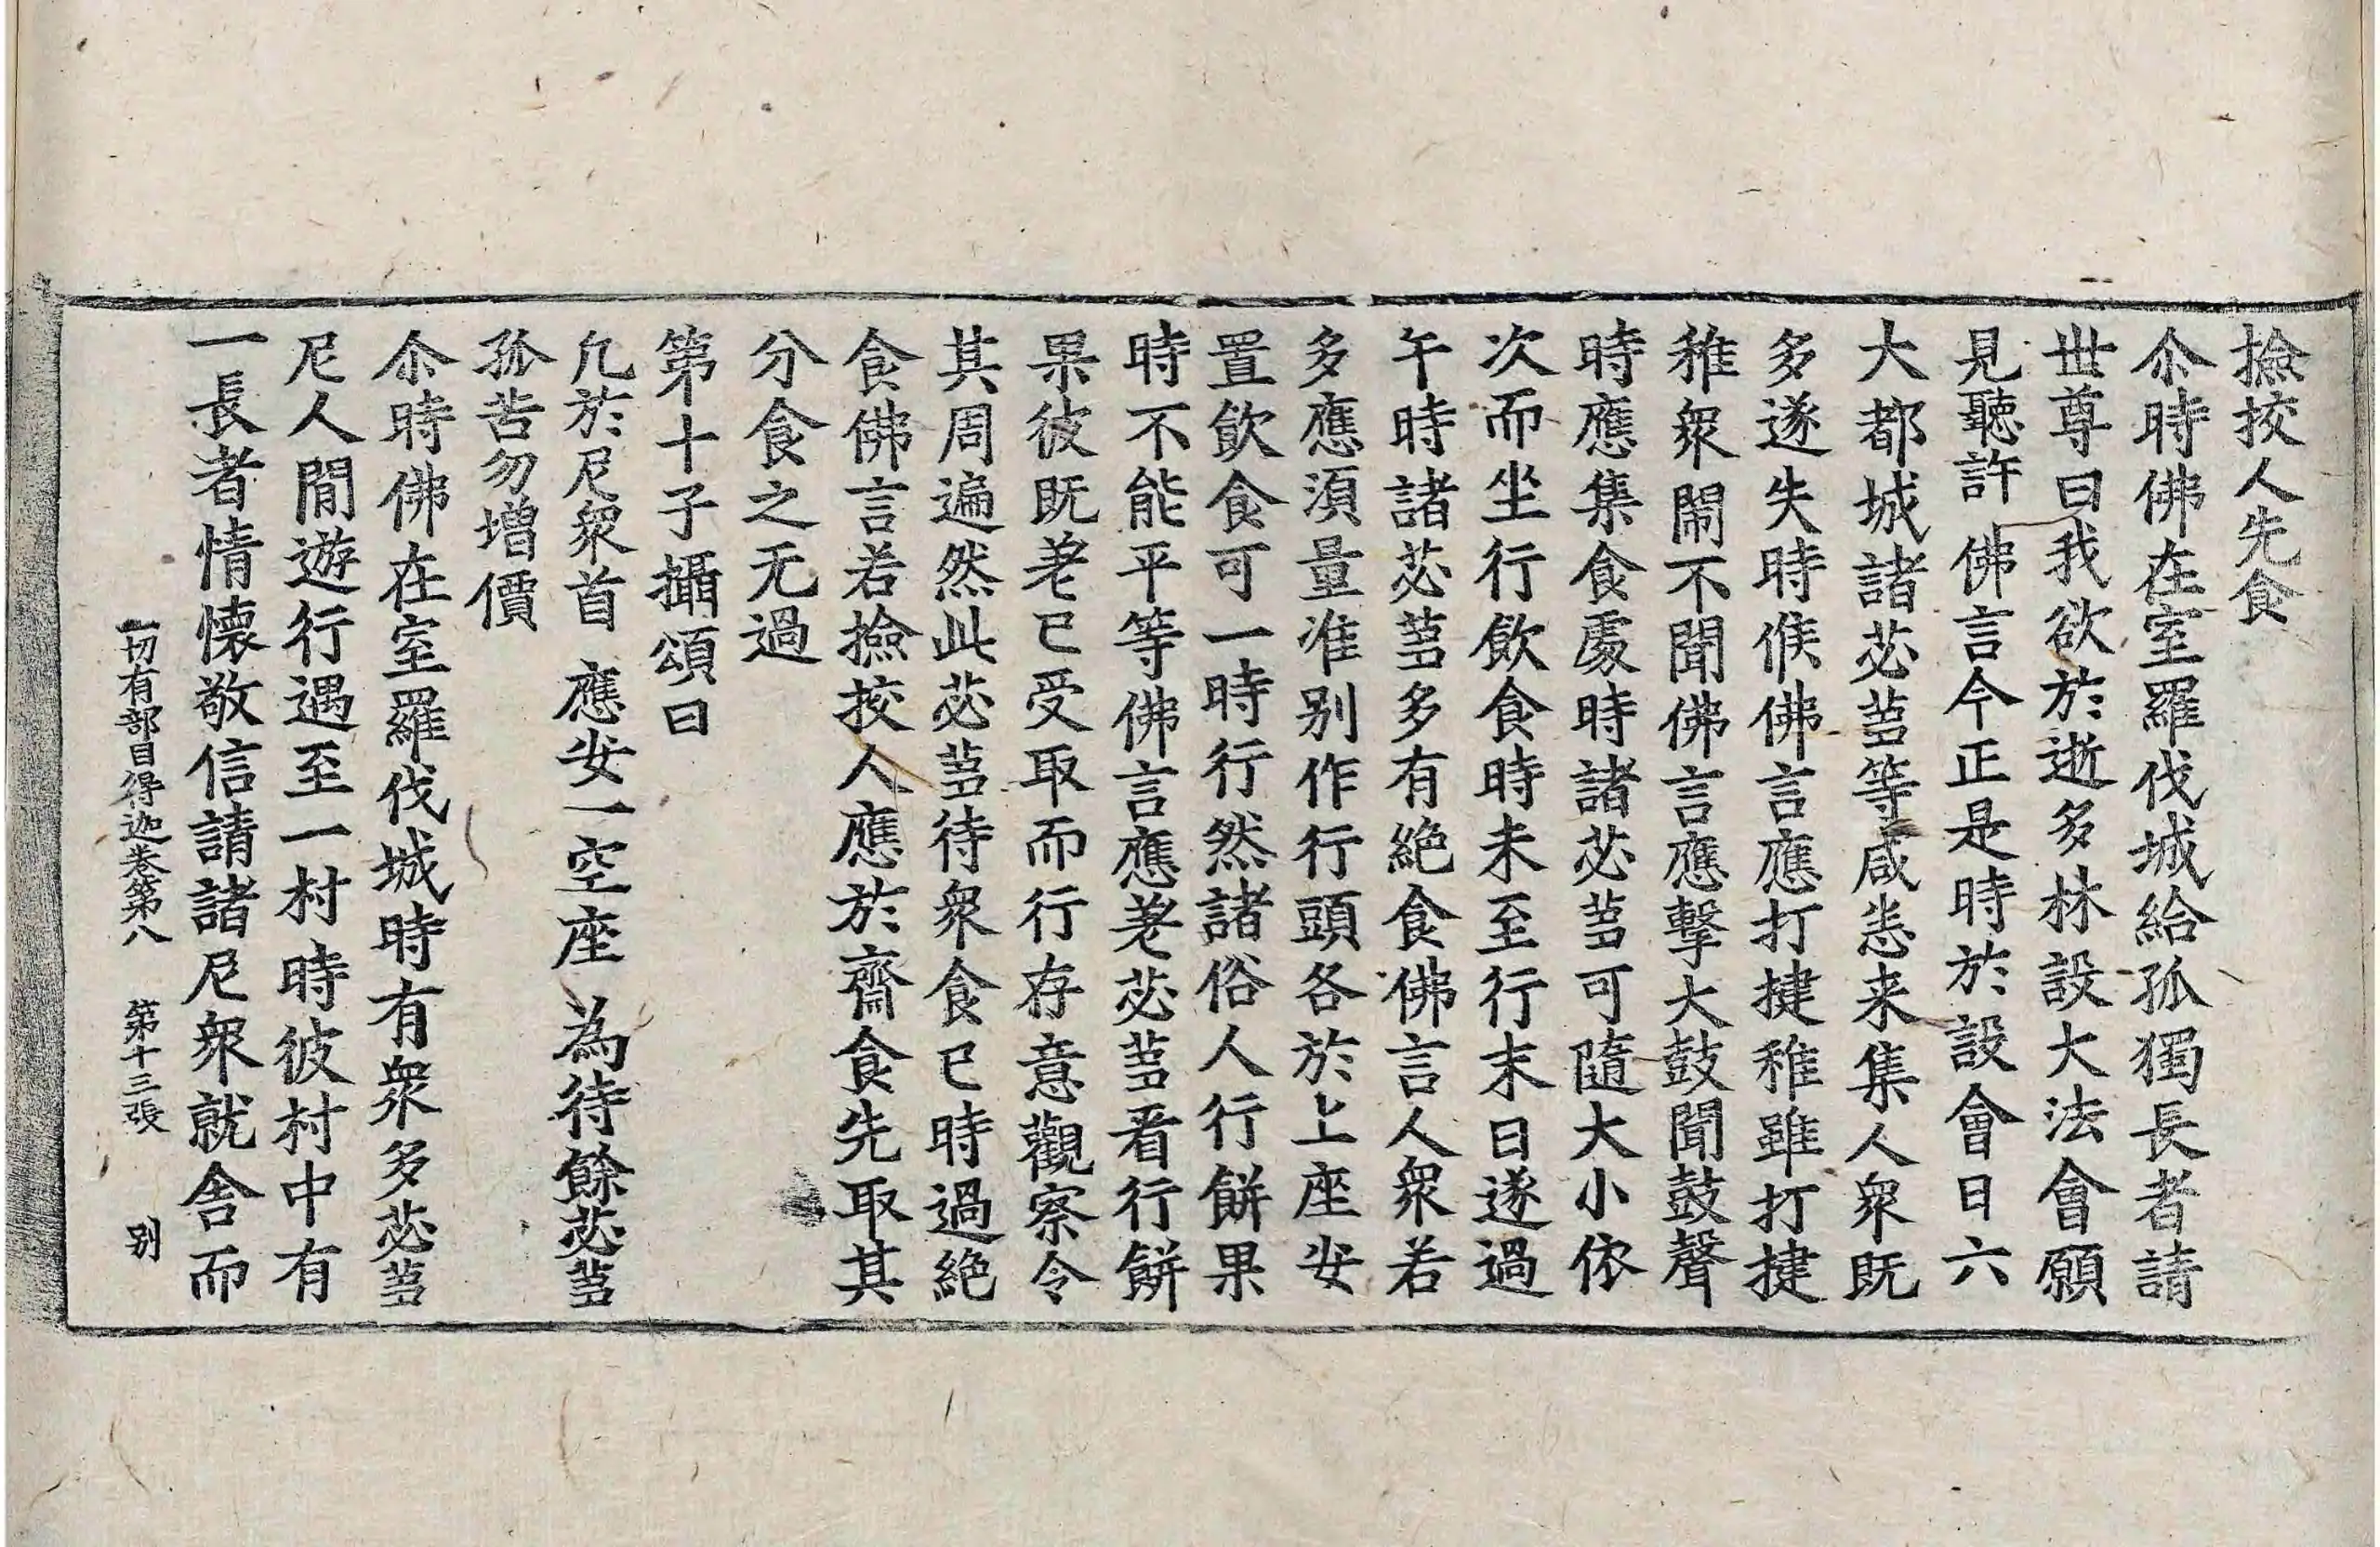 撿挍人先食
尒時佛在室羅伐城給孤獨長者請
世尊曰我欲於逝多林設大法會願
見聽許佛言今正是時於設會日六
大都城諸苾芻等咸悉来集人衆既
多遂失時候佛言應打揵稚雖打揵
稚衆閙不聞佛言應擊大鼓聞鼓聲
時應集食處時諸苾芻可隨大小依
次而坐行飲食時未至行末日遂過
午時諸苾芻多有絶食佛言人衆若
多應須量准别作行頭各於上座安
置飲食可一時行然諸俗人行餅果
時不能平等佛言應差苾芻看行餅
果彼既差已受取而行存意觀察令
其周遍然此苾芻待衆食已時過絶
食佛言若撿挍人應於齋食先取其
分食之无過
第十子攝頌曰
凡於尼衆首　應安一空座　為待餘苾芻
孤苦勿增價
尒時佛在室羅伐城時有衆多苾芻
尼人閒遊行遇至一村時彼村中有
一長者情懷敬信請諸尼衆就舍而
一切有部目得迦卷第八　第十三張　别